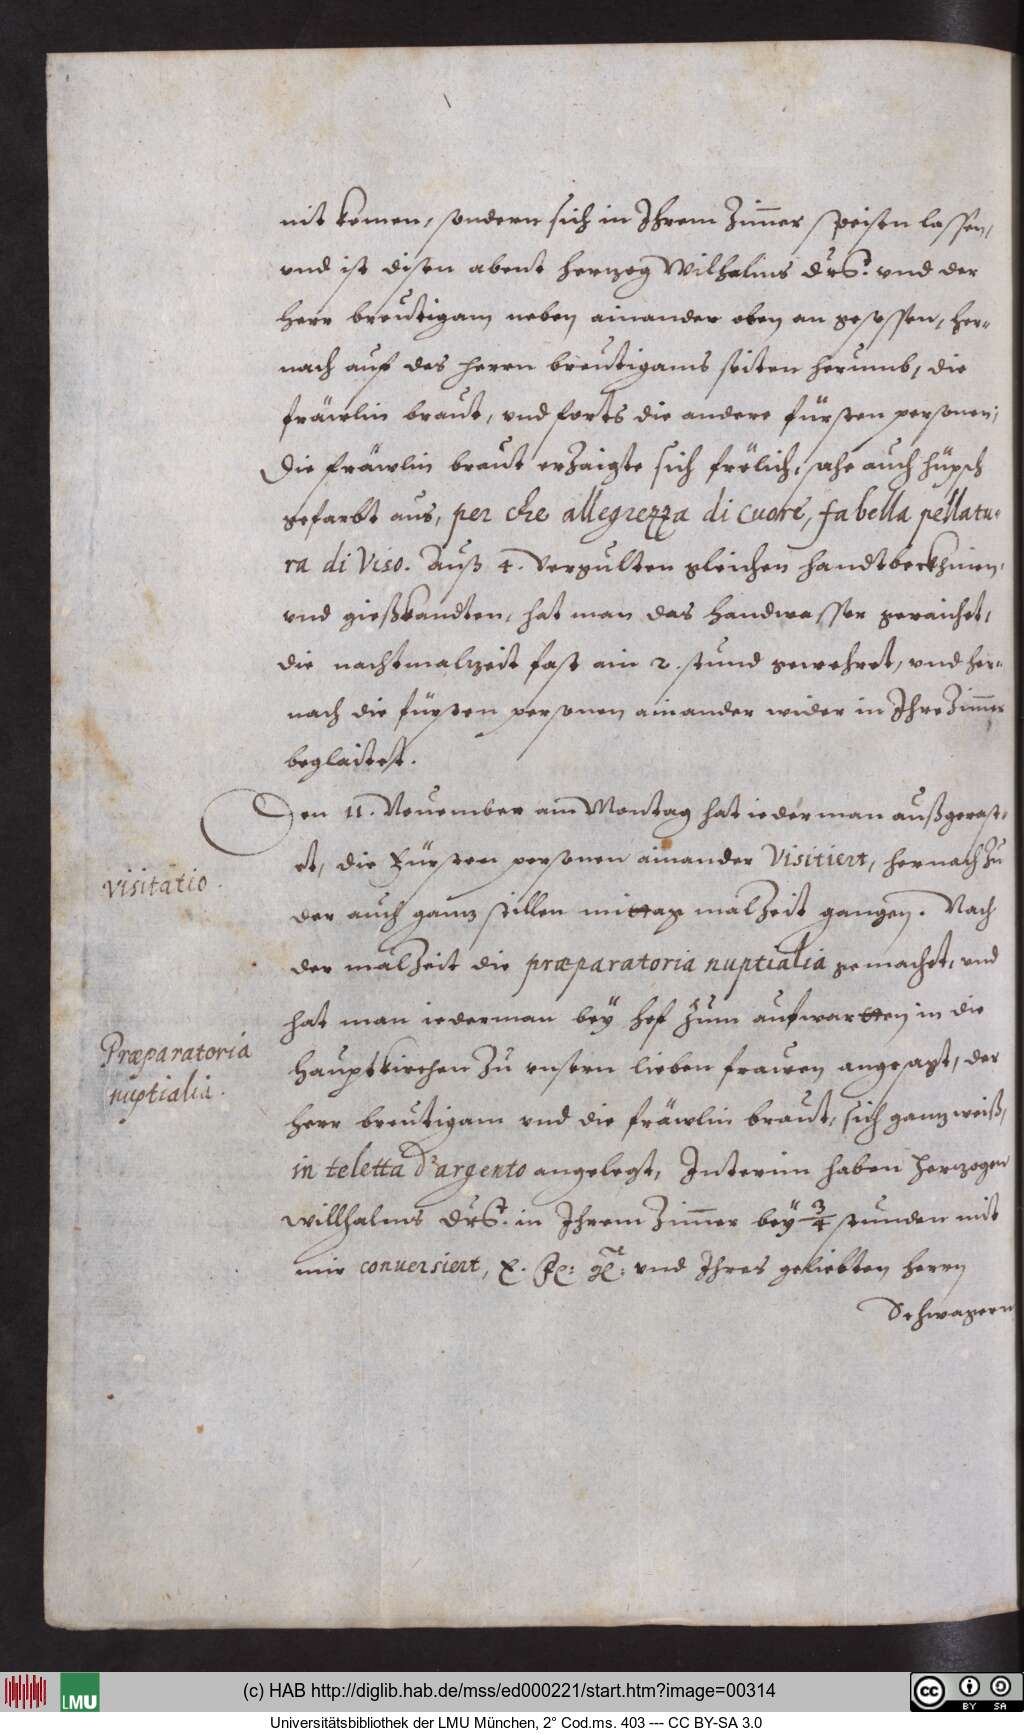 nit komen, sondern sich in Ihrem Zimmer speisen lassen,
vnd ist disen abent herzog Wilhalms drt. vnd der
herr breutigam neben ainander oben an gesessen, her-
nach auf des herrn breutigams seiten herumb, die
fräwlin braut, vnd forts die andere fürsten personen,
Die fräwlin braut erzaigte sich frölich, sahe auch hüpsch
gefarbt aus, per che allegrezza di cuore, fa bella pellatu-
ra di Viso. Auß 4. vergulten gleichen handtbeckhinen,
vnd gießkandten, hat man das handwasser geraichet,
die nachtmalzeit fast ain 2. stund gewehret, vnd her-
nach die fürsten personen ainander wider in Ihre Zimmer
beglaitet.
Den 11. Nouember am Montag hat iederman außgerast-
visitatio.
et, die Fürsten personen ainander visitiert, hernach zu
der auch ganz stillen mittag malzeit gangen. Nach
der malzeit die præparatoria nuptialia gemachet, vnd
hat man iederman bey hof zum aufwartten in die
Præparatoria
nuptialia.
hauptkirchen zu vnsern lieben frawen angesagt, der
herr breutigam vnd die fräwlin braut, sich ganz weiß,
in teletta d'argento angelegt, Interim haben herzogen
willhalms drt. in Ihrem Zimmer bey 3/4 stunden mit
mir conuersiert, vnd Ihres geliebten herrn
Schwagern
(c) HAB http://diglib.hab.de/mss/ed000221/start.htm?image=00314
LMU
CC BY SA
Universitätsbibliothek der LMU München, 2° Cod.ms. 403 --- CC BY-SA 3.0